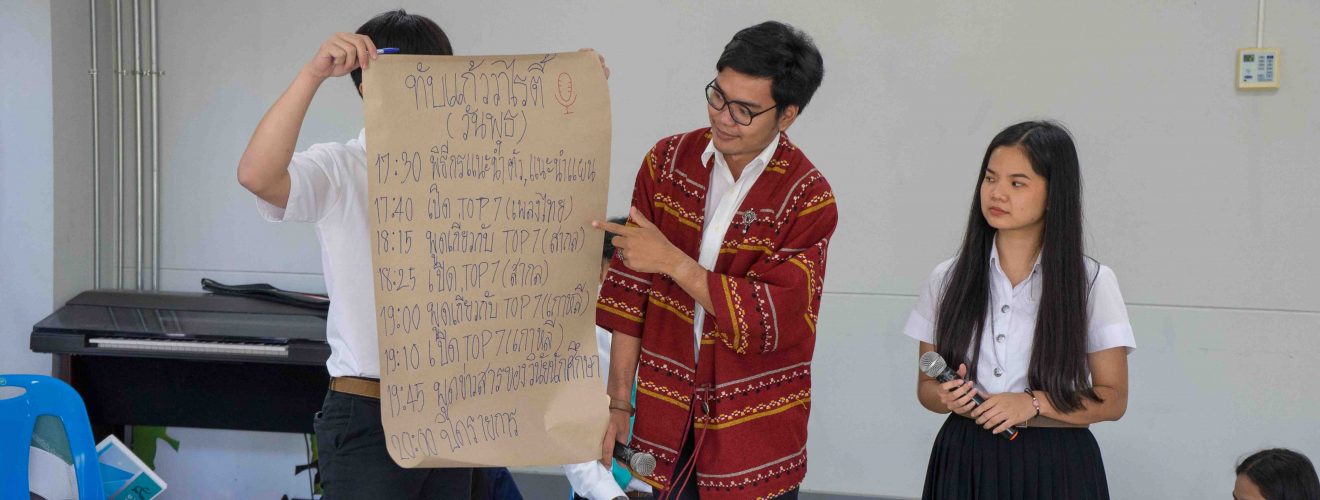 ทับแก้ววาไรตี้
(วันพุธ)
17:30 พิธีกรแนะนำตัว,แนะนำแผน
17:40 เปิด TOP 7 (เพลงไทย)
18:15 พูดเกี่ยวกับ TOP 7 (สากล)
18:25 เปิด TOP 7 (สากล)
19:00 พูดเกี่ยวกับ TOP 7 (เกาหลี)
19:10 เปิด TOP 7 (เกาหลี)
19:45 พูดข่าวสารของวินัยนักศึกษา
20:00 ปิดรายการ